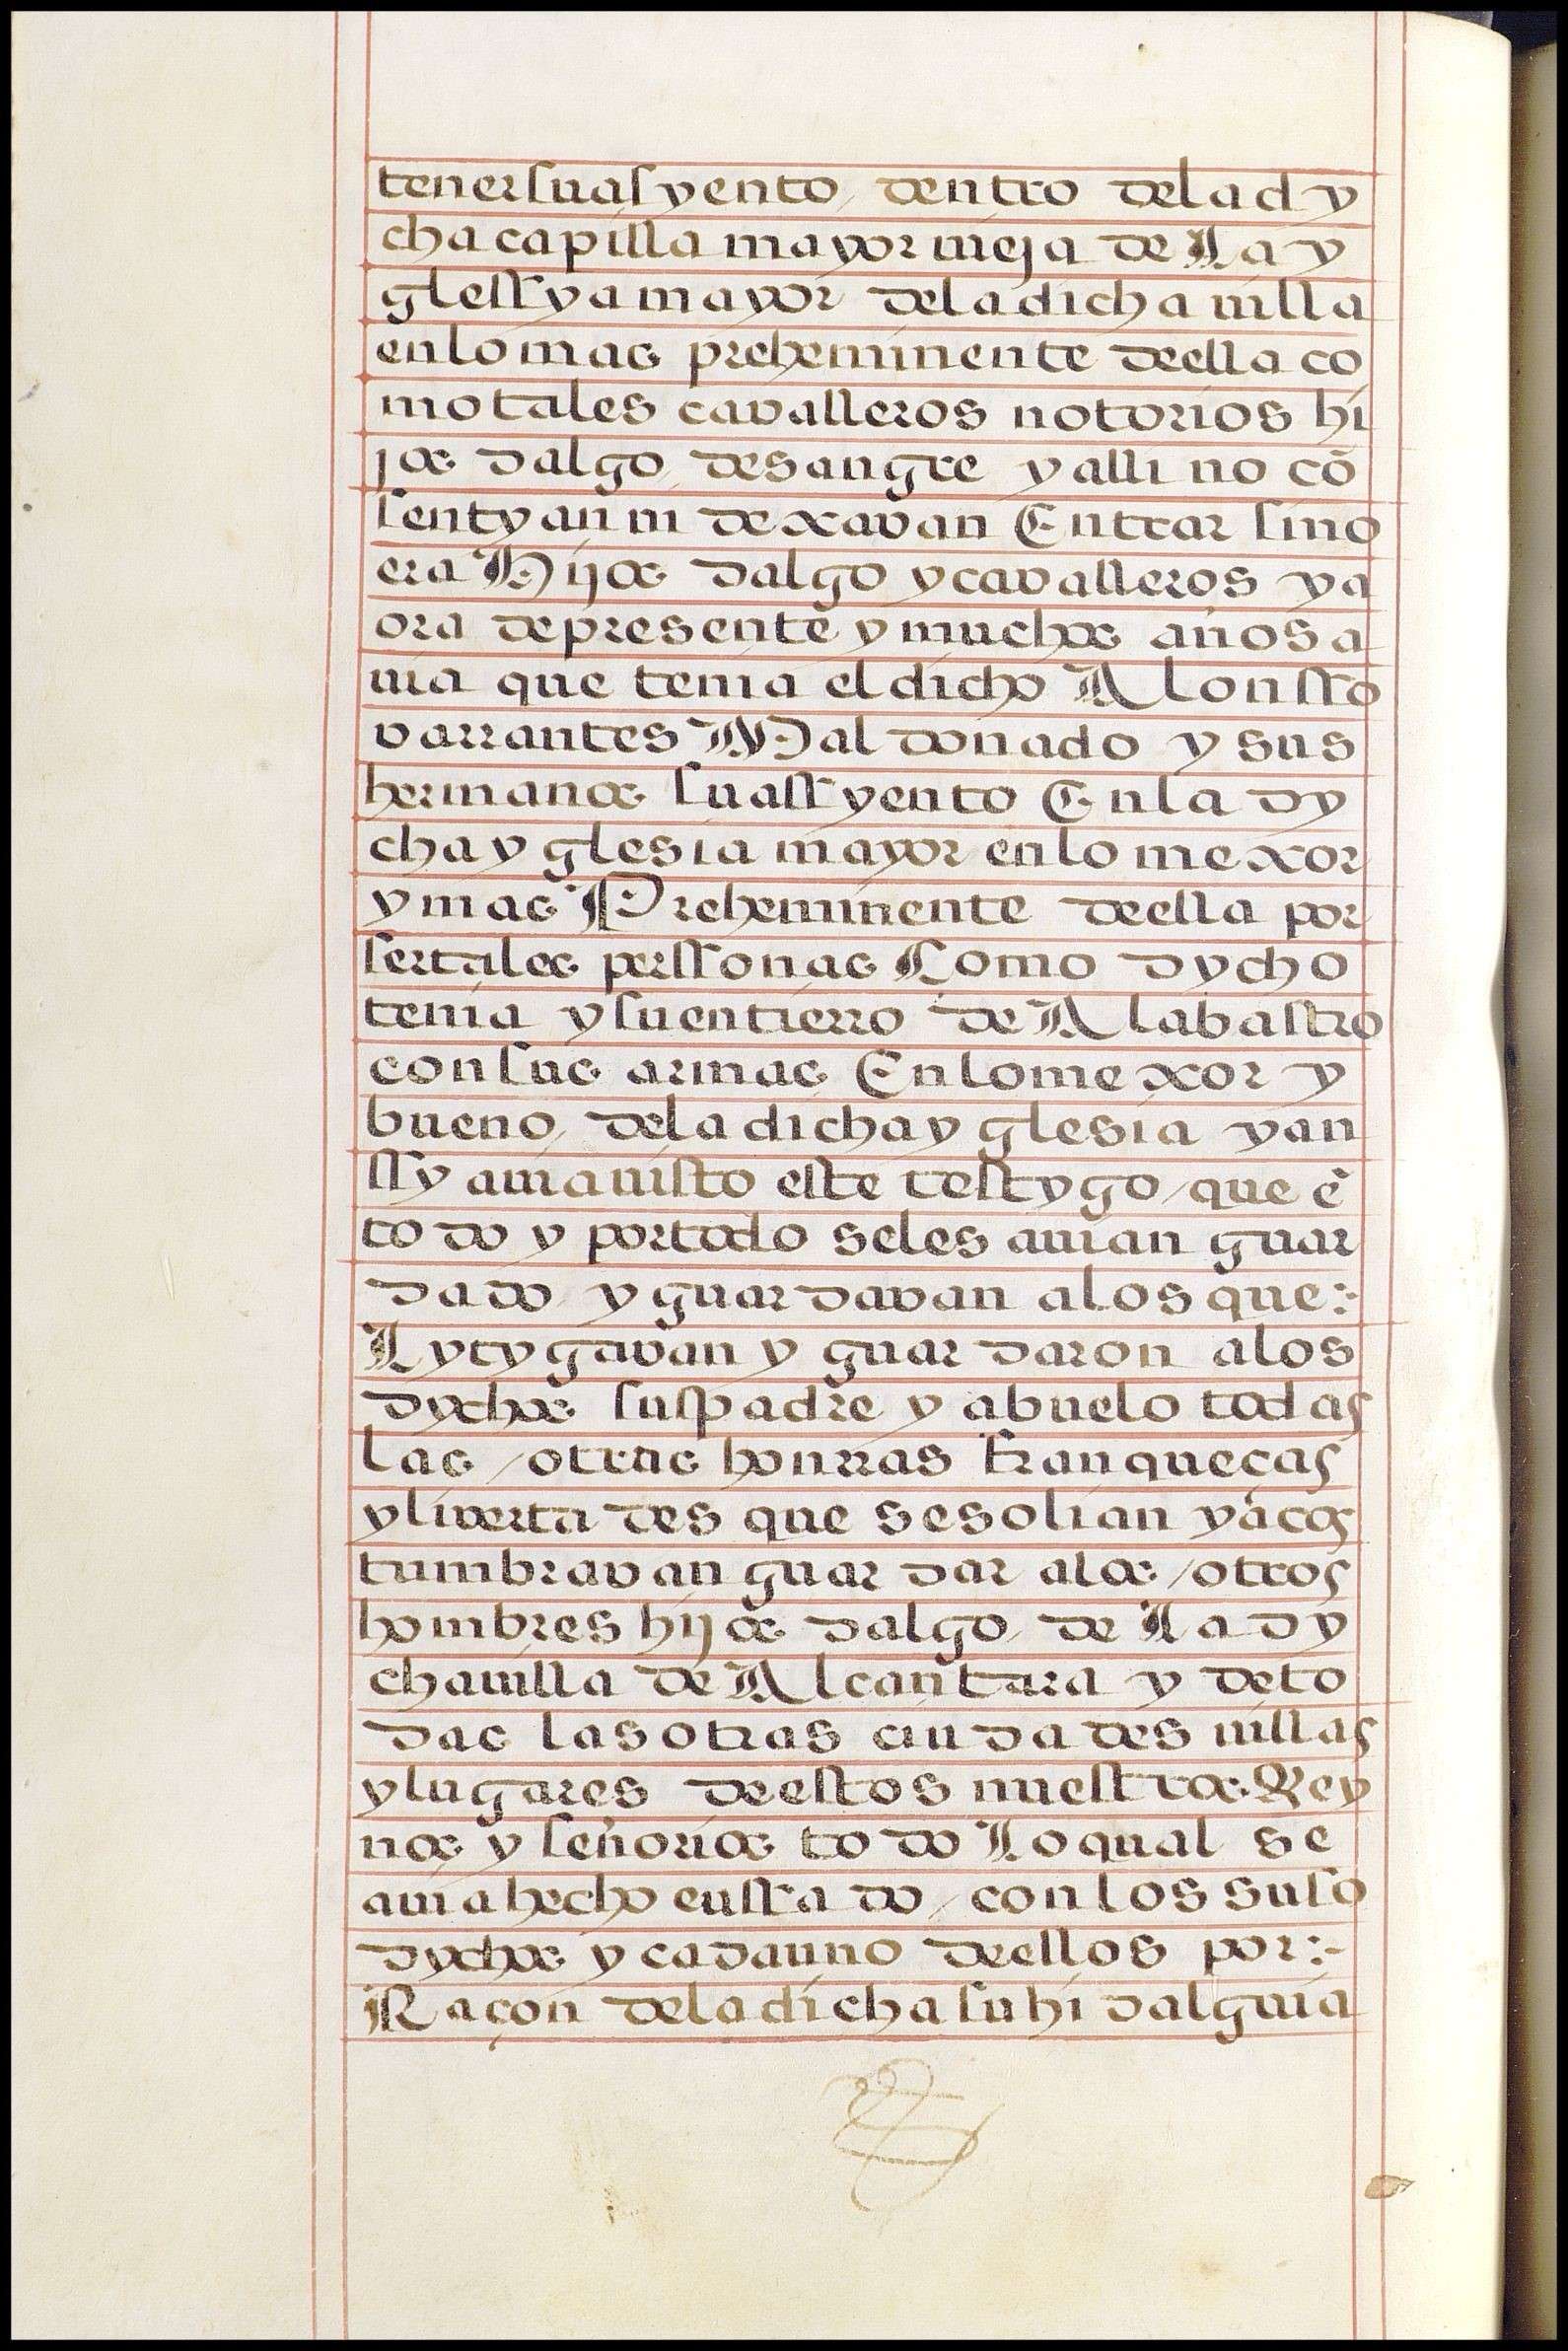 tener su asyento / dentro de la dy
cha capilla mayor vieja de La y
glessya mayor de la dicha villa
en lo mas preheminente de ella co
mo tales cavalleros notorios hi
jos dalgo / de sangre y alli no cõ
sentyan ni dexavan Entrar sino
era Hijos dalgo y cavalleros y a
ora de presente y muchos años a
via que tenia el dicho Alonsso
varrantes Maldonado y sus
hermanos su assyento En la dy
cha yglesia mayor en lo mexor
y mas Preheminente de ella por
ser tales perssonas Como dycho
tenia y su entierro de Alabastro
con sus armas En lo mexor y
bueno / de la dicha yglesia y an
ssy avia visto este testygo / que ẽ
todo y por todo se les avian guar
dado / y guardavan a los que :~
Lytygavan y guardaron a los
dychos sus padre y abuelo todas
las / otras honrras franqueças
y livertades que se solian y acos
tumbravan guardar a los / otros
hombres hijos dalgo / de La dy
cha villa de Alcantara y de to
das las otras ciudades villas
y lugares de estos nuestros Rey
nos y señorios todo Lo qual se
avia hecho e ussado / con los suso
dychos y cada uno de ellos por :~
Raçon de la dicha su hidalguia